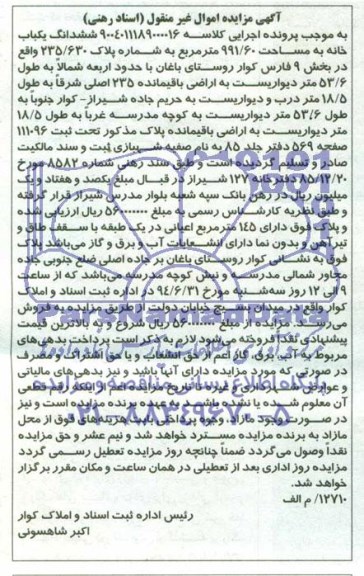 آگهی مزایده اموال غیر منقول (اسناد رهنی)
به موجب پرونده اجرایی کلاسه ۹۰۰۴۰۱۱۱۸۹۰۰۰۰۱۶ ششدانگ یکباب
خانه به مساحت ۹۹۱/۶۰ مترمربع به شماره پلاک ۲۳۵/۶۳۰ واقع
در بخش ۹ فارس کوار روستای باغان با حدود اربعه شمالاً به طول
۵۳/۶ متر دیواریست به اراضی باقیمانده ۲۳۵ اصلی شرقاً به طول
۱۸/۵ متر درب و دیواریست به حریم جاده شیراز-کوار جنوباً به
طول ۵۳/۶ متر دیواریست به کوچه مدرسه غرباً به طول ۱۸/۵
متر دیواریست به اراضی باقیمانده پلاک مذکور تحت ثبت ۱۱۱۰۹۶
صفحه ۵۶۹ دفتر جلد ۸۵ به نام صفیه شیبازی ثبت و سند مالکیت
صادر و تسلیم گردیده است و طبق سند رهنی شماره ۸۵۸۲ مورخ
۸۵/۱۲/۲۰ دفترخانه ۱۲۷ شیراز در قبال مبلغ یکصد و هفتاد و یک
میلیون ریال در رهن بانک سپه شعبه بلوار مدرس شیراز قرار گرفته
و طبق نظریه کارشناس رسمی به مبلغ ۵۶۰۰۰۰۰۰۰ ریال ارزیابی شده
و پلاک فوق دارای ۱۴۵ مترمربع اعیانی در یک طبقه با سقف طاق و
تیرآهن و بدون نما دارای انشعابات آب و برق و گاز می‌باشد پلاک
فوق به نشانی کوار روستای باغان بر جاده اصلی ضلع جنوبی جاده
مجاور شمالی مدرسه و نبش کوچه مدرسه می‌باشد که از ساعت
۹ الی ۱۲ روز سه‌شنبه مورخ ۹۴/۶/۳۱ در اداره ثبت اسناد و املاک
کوار واقع در میدان بسیج خیابان دولت از طریق مزایده به فروش
می‌رسد. مزایده از مبلغ ۵۶۰۰۰۰۰۰۰ ریال شروع و به بالاترین قیمت
پیشنهادی نقداً فروخته می‌شود لازم به ذکر است پرداخت بدهی‌های
مربوط به آب، برق، گاز اعم از حق انشعاب و یا حق اشتراک و مصرف
در صورتی که مورد مزایده دارای آنها باشد و نیز بدهی‌های مالیاتی
و عوارض شهرداری و غیره تا تاریخ مزایده اعم از اینکه رقم قطعی
آن معلوم شده یا نشده باشد به عهده برنده مزایده است و نیز
در صورت وجود مازاد، وجوه پرداختی بابت هزینه‌های فوق از محل
مازاد به برنده مزایده مسترد خواهد شد و نیم عشر و حق مزایده
نقداً وصول می‌گردد ضمناً چنانچه روز مزایده تعطیل رسمی گردد
مزایده روز اداری بعد از تعطیلی در همان ساعت و مکان مقرر برگزار
خواهد شد.
۱۲۷۱۰/ م الف
رئیس اداره ثبت اسناد و املاک کوار
اکبر شاهسونی